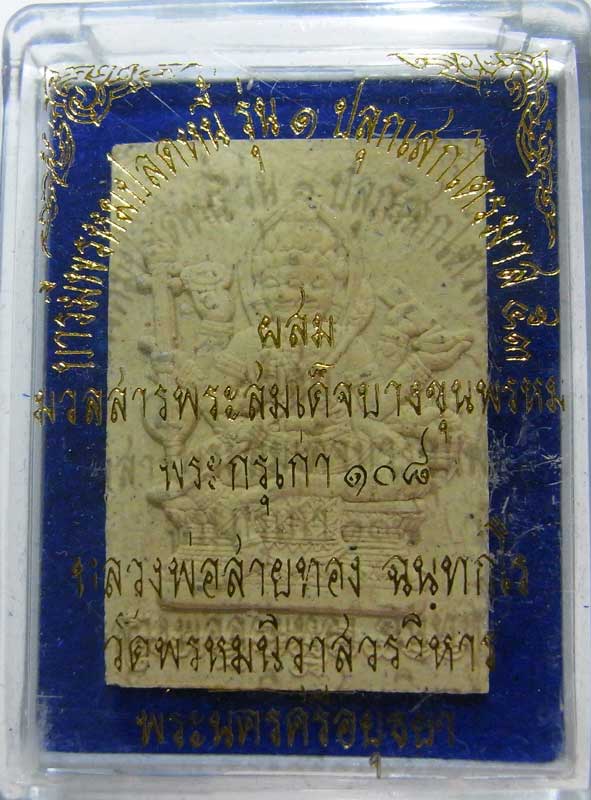 บารมีพรหมปลดหนี้ รุ่น ๑ ปลุกเสกไตรมาส ๕๓
ผสม
มวลสารพระสมเด็จบางขุนพรหม
พระกรุเก่า ๑๐๘
หลวงพ่อสายทอง ฉนฺทกโร
วัดพรหมนิวาสวรวิหาร
พระนครศรีอยุธยา